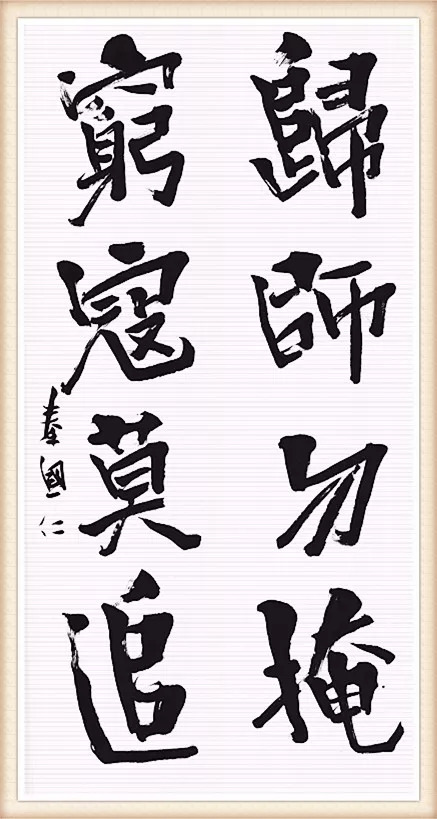 歸師勿掩
窮寇莫追
秦國仁